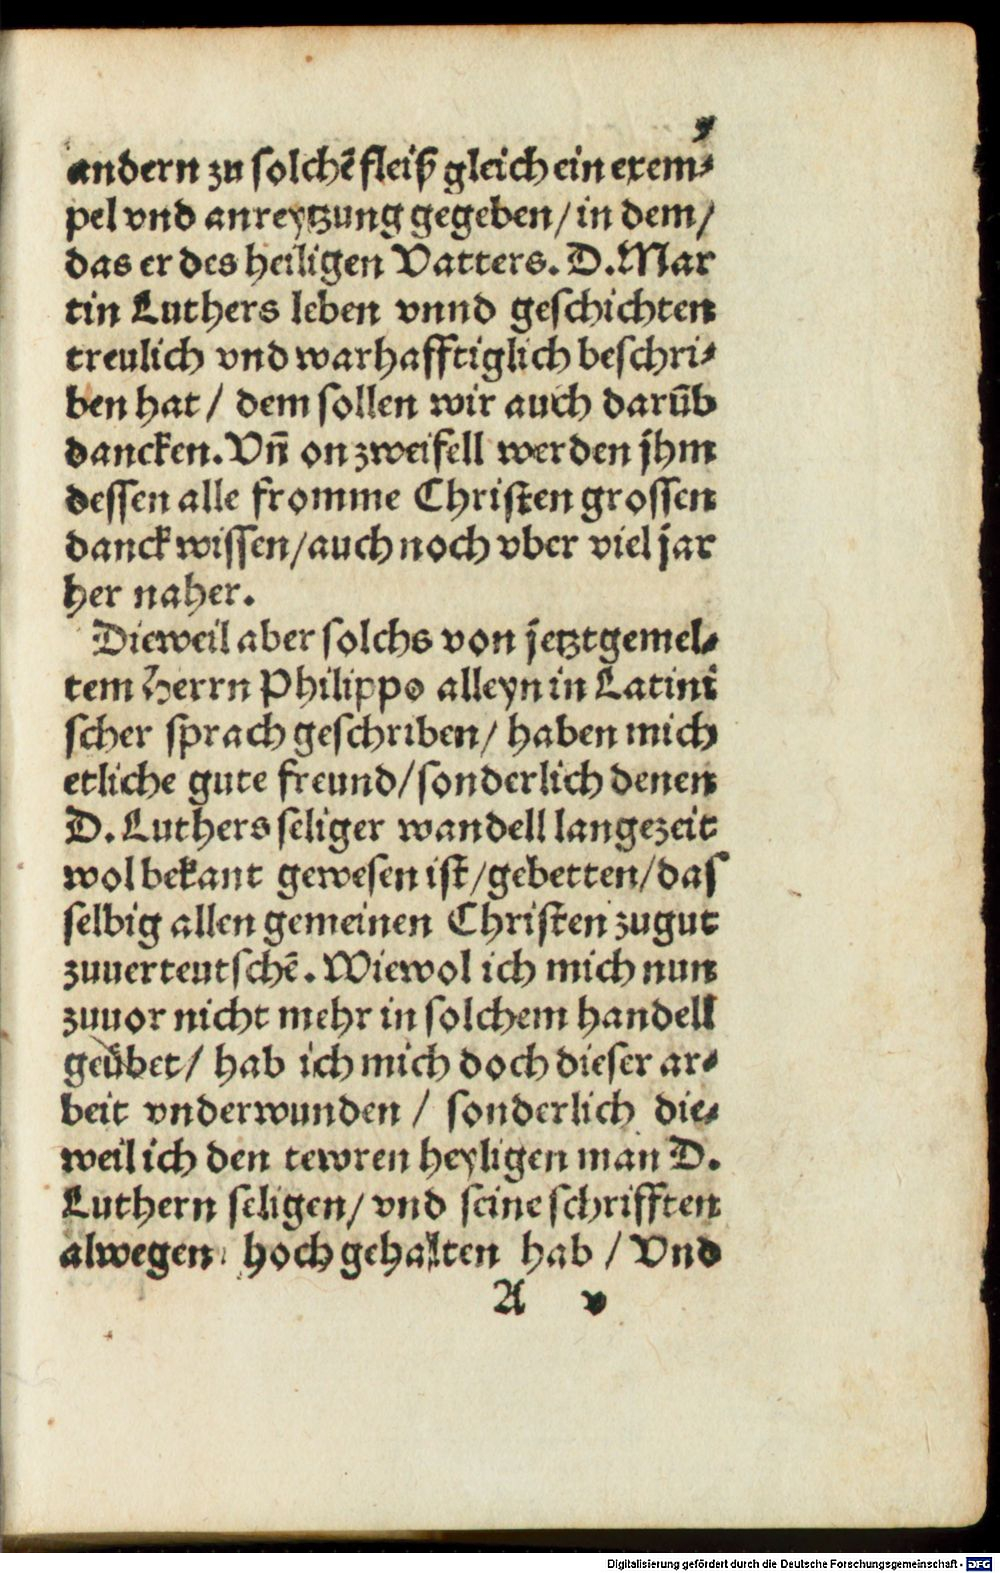 5
andern zu solchē fleiß gleich ein exem⸗
pel vnd anreytzung gegeben / in dem /
das er des heiligen Vatters. D. Mar
tin Luthers leben vnnd geschichten
treulich vnd warhafftiglich beschri⸗
ben hat / dem sollen wir auch darūb
dancken. Vn̄ on zweifell werden jhm
dessen alle fromme Christen grossen
danck wissen / auch noch vber viel jar
her naher.
Dieweil aber solchs von jetztgemel⸗
tem Herrn Philippo alleyn in Latini
scher sprach geschriben / haben mich
etliche gute freund / sonderlich denen
D. Luthers seliger wandell langezeit
wol bekant gewesen ist / gebetten / das
selbig allen gemeinen Christen zu gut
zuuerteutschē. Wiewol ich mich nun
zuuor nicht mehr in solchem handell
geübet / hab ich mich doch dieser ar⸗
beit vnderwunden / sonderlich die⸗
weil ich den tewren heyligen man D.
Luthern seligen / vnd seine schrifften
alwegen hoch gehalten hab / Vnd
A v
Digitalisierung gefördert durch die Deutsche Forschungsgemeinschaft - DFG